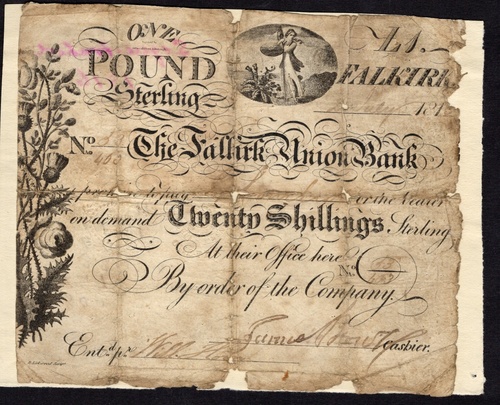 ONE
POUND
Sterling
£1.
FALKIRK
181
No. 403
The Falkirk Union Bank
promise to pay or the Bearer
on demand Twenty Shillings Sterling
At their Office here
No.
By order of the Company.
Entd. pr. Cashier.